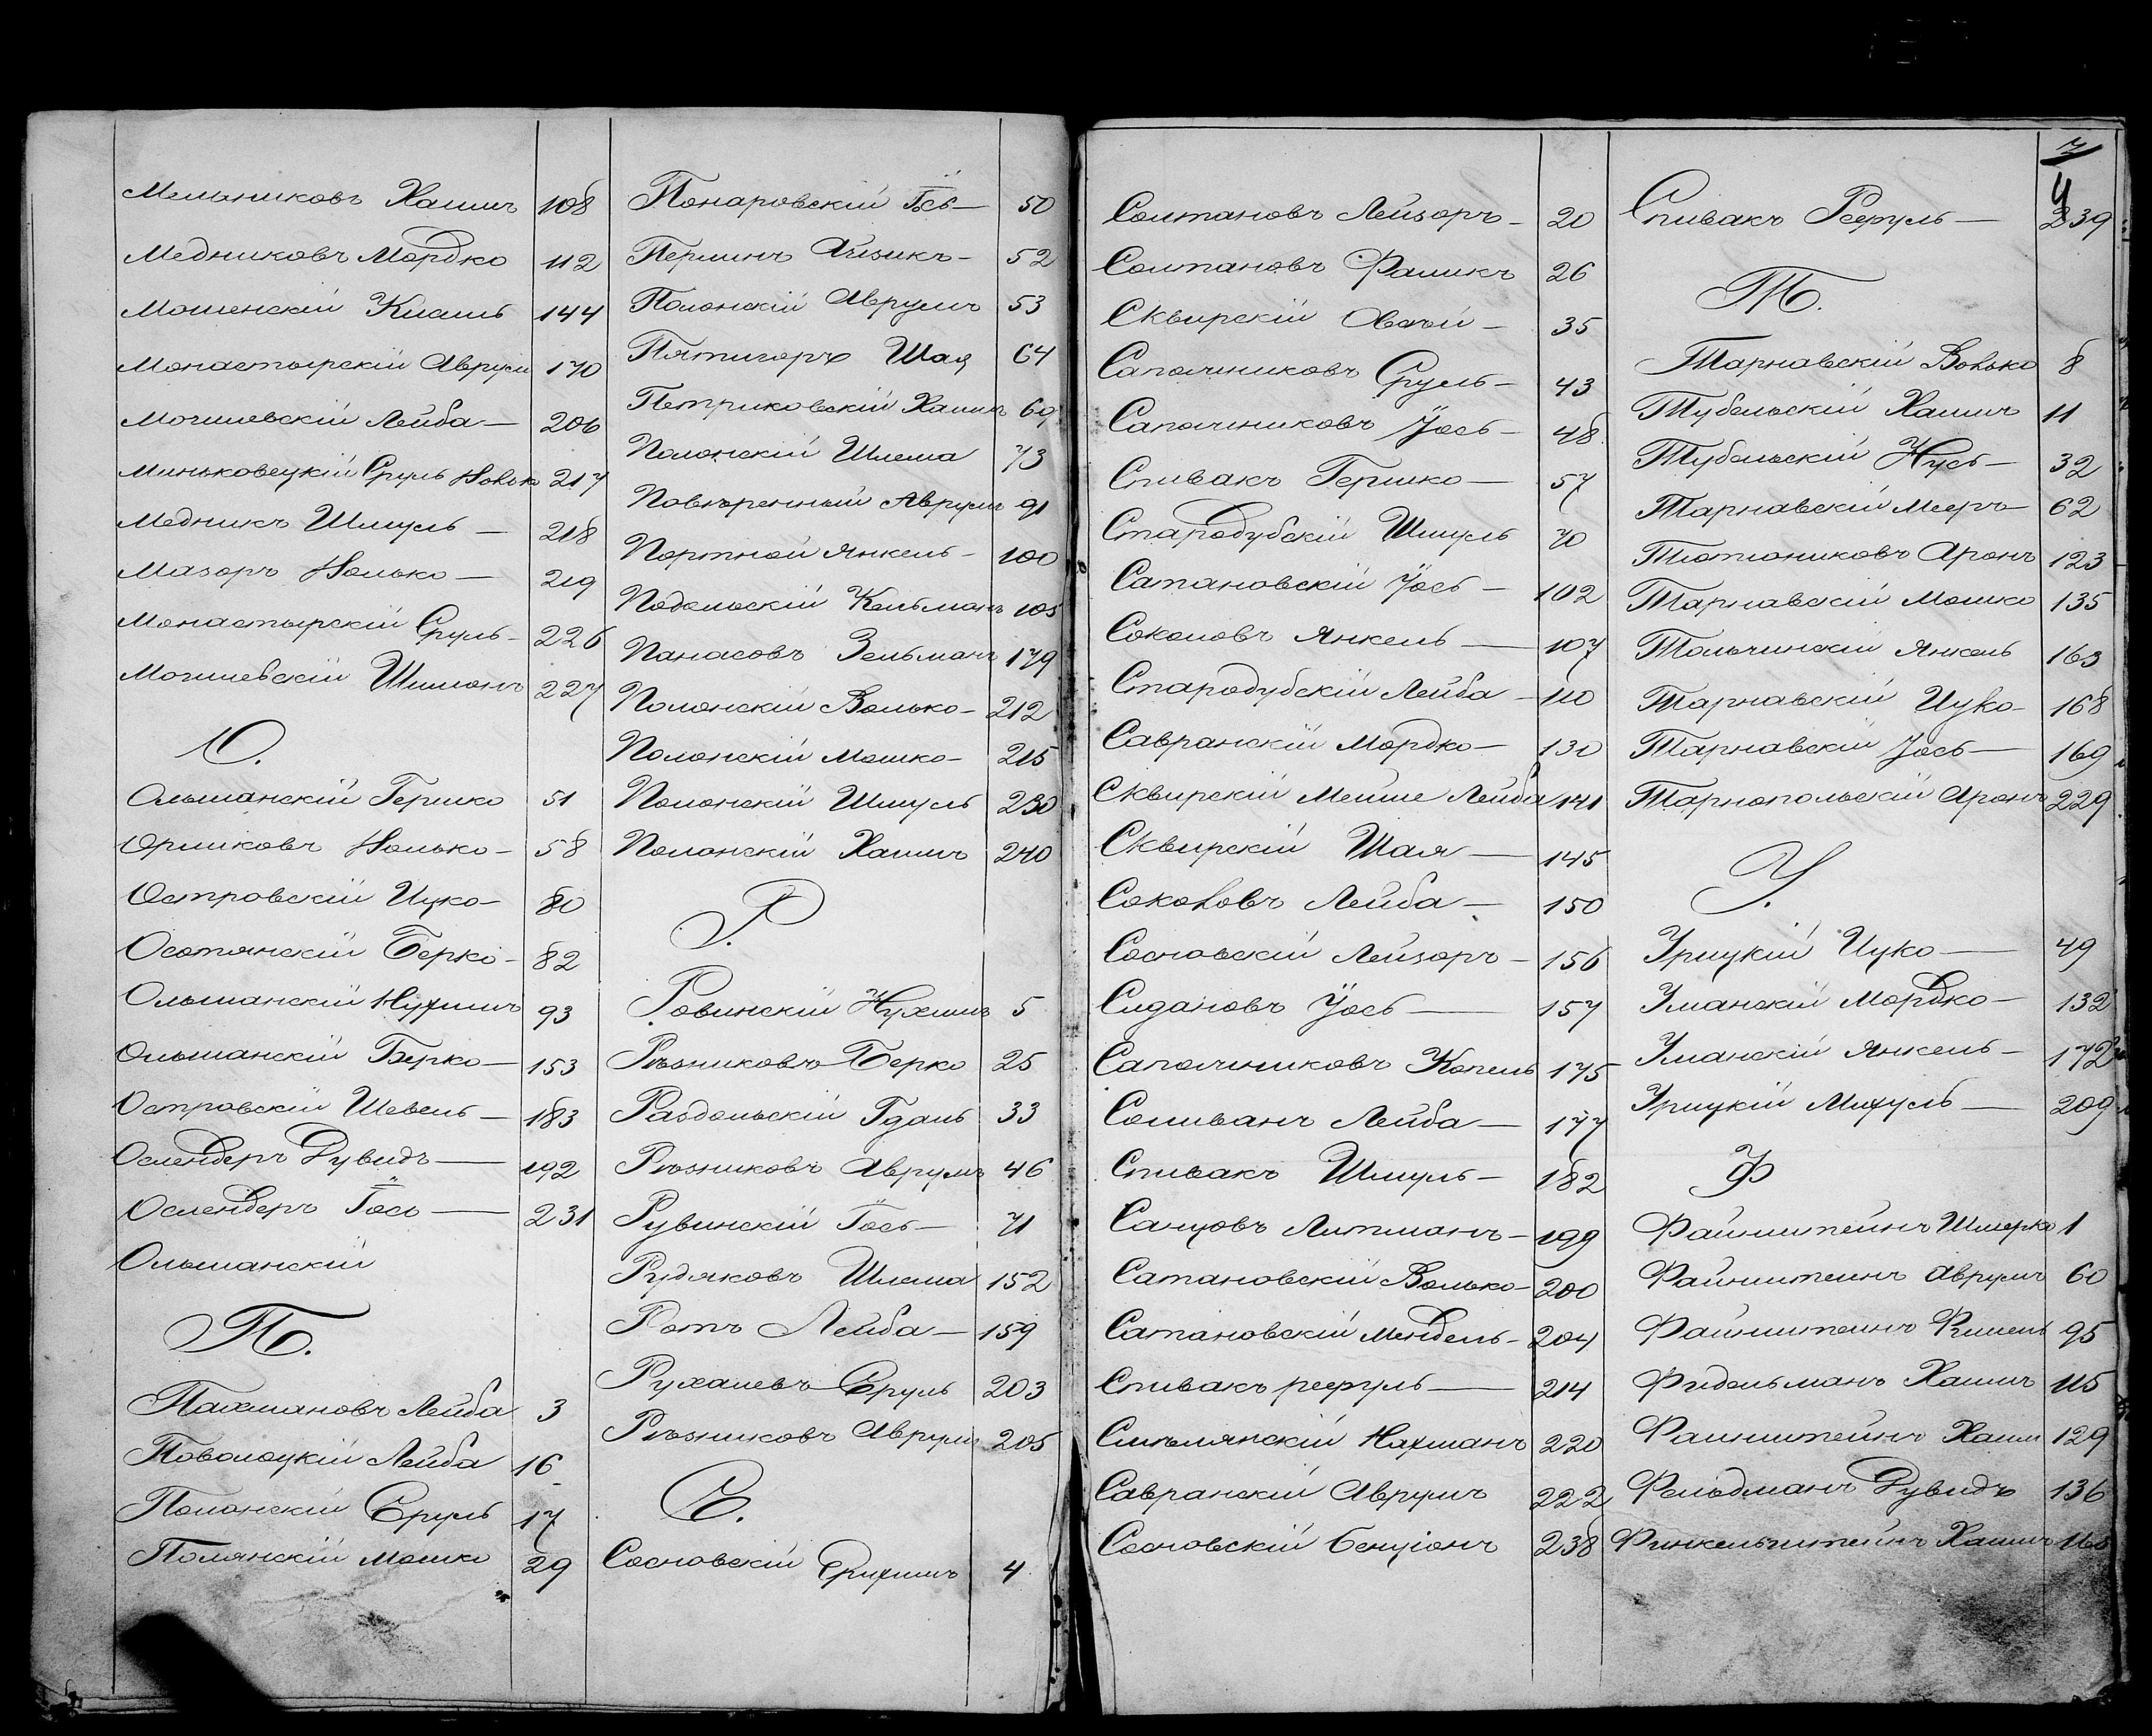 Мельниковъ Хаимъ 108
Медниковъ Мордко 112
Мошенскій Кисиль 144
Монастырскій Аврум 170
Могилевскій Лейба — 206
Миньковецкій Сруль Волько 217
Медникъ Шмуль — 218
Мазоръ Волько — 219
Монастырскій Сруль - 226
Могилевскій Шимонъ 227
О.
Ольшанскій Гершко 51
Орликовъ Волько - 58
Островскій Ицко - 80
Осотянскій Берко - 82
Ольшанскій Нухимъ 93
Ольшанскій Берко — 153
Островскій Шевель — 183
Ослендеръ Дувидъ — 192
Ослендеръ Іось — 231
Ольшанскій
П.
Пахмановъ Лейба 3
Поволоцкій Лейба 16
Полонскій Сруль 17
Полянскій Мошко 29
Понаровскій Іось — 50
Перлинъ Айзикъ - 52
Полонскій Аврумъ 53
Пятигоръ Шая 64
Петриковскій Хаимъ 69
Полонскій Шлема 73
Повѣренный Аврумъ 91
Портной Янкель - 100
Подольскій Кельманъ 105
Панасовъ Зельманъ 179
Полонскій Волько - 212
Полонскій Мошко - 215
Полонскій Шмуль 230
Полонскій Хаимъ 240
Р.
Ровинскій Нухимъ 5
Рѣзниковъ Берко 25
Раздольскій Гдаль 33
Рѣзниковъ Аврумъ 46
Рувинскій Іось — 71
Рудяковъ Шлема 152
Ротъ Лейба — 159
Рухалевъ Сруль 203
Рѣзниковъ Аврумъ 205
С.
Сосновскій Срухимъ 4
7
4
Солтановъ Лейзоръ - 20
Солтановъ Фаликъ 26
Сквирскій Овсѣй - 35
Сапожниковъ Сруль - 43
Сапожниковъ Іось - 48
Спивакъ Гершко — 57
Стародубскій Шмуль 70
Сатановскій Іось — 102
Соколовъ Янкель — 107
Стародубскій Лейба - 110
Савранскій Мордко — 130
Сквирскій Мейше Лейба 141
Сквирскій Шая — 145
Соколовъ Лейба — 150
Сосновскій Лейзоръ - 156
Сидановъ Іось — 157
Сапожниковъ Копель 175
Соливанъ Лейба — 177
Спивакъ Шмуль - 182
Санцовъ Литманъ - 199
Сатановскій Волько - 200
Сатановскій Мендель - 204
Спивакъ рефуль — 214
Смѣлянскій Нахманъ 220
Савранскій Аврумъ 222
Сосновскій Бенціонъ 238
Спивакъ Рефуль — 239
Т.
Тарнавскій Волько 8
Тубельскій Хаимъ 11
Тубельскій Нусь — 32
Тарнавскій Мееръ — 62
Тютюниковъ Аронъ 123
Тарнавскій Мошко 135
Тольчинскій Янкель 163
Тарнавскій Ицко - 168
Тарнавскій Іось — 169
Тарнопольскій Аронъ 229
У.
Урицкій Ицко — 49
Уманскій Мордко — 132
Уманскій Янкель — 172
Урицкій Михуль — 209
Ф
Файнштейнъ Шмерко 1
Файнштейнъ Аврумъ 60
Файнштейнъ Фишель 95
Фидельманъ Хаимъ 115
Файнштейнъ Хаим 129
Фельдманъ Дувидъ 136
Финкельштейнъ Хаимъ